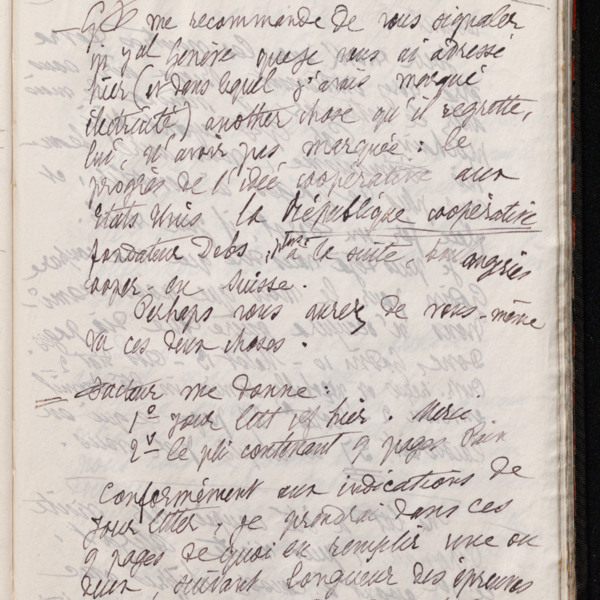 me recommande de vous signaler
in yal Genève que je vous ai adressé
hier (et dans lequel j'avais marqué
électricité) another chose qu'il regrette,
lui, n'avoir pas marquée : le
progrès de l'idée coopérative aux
états Unis la République coopérative
fondateur Debs, à la suite, congrès
cooper. en Suisse.
Perhaps vous aurez de vous-même
vu ces deux choses.
= Facteur me donne :
1º your lett of hier. Merci.
2º le pli contenant 9 pages
Conformément aux indications de
your letter, je prendrai dans ces
9 pages de quoi en remplir une ou
deux, suivant longueur des épreuves